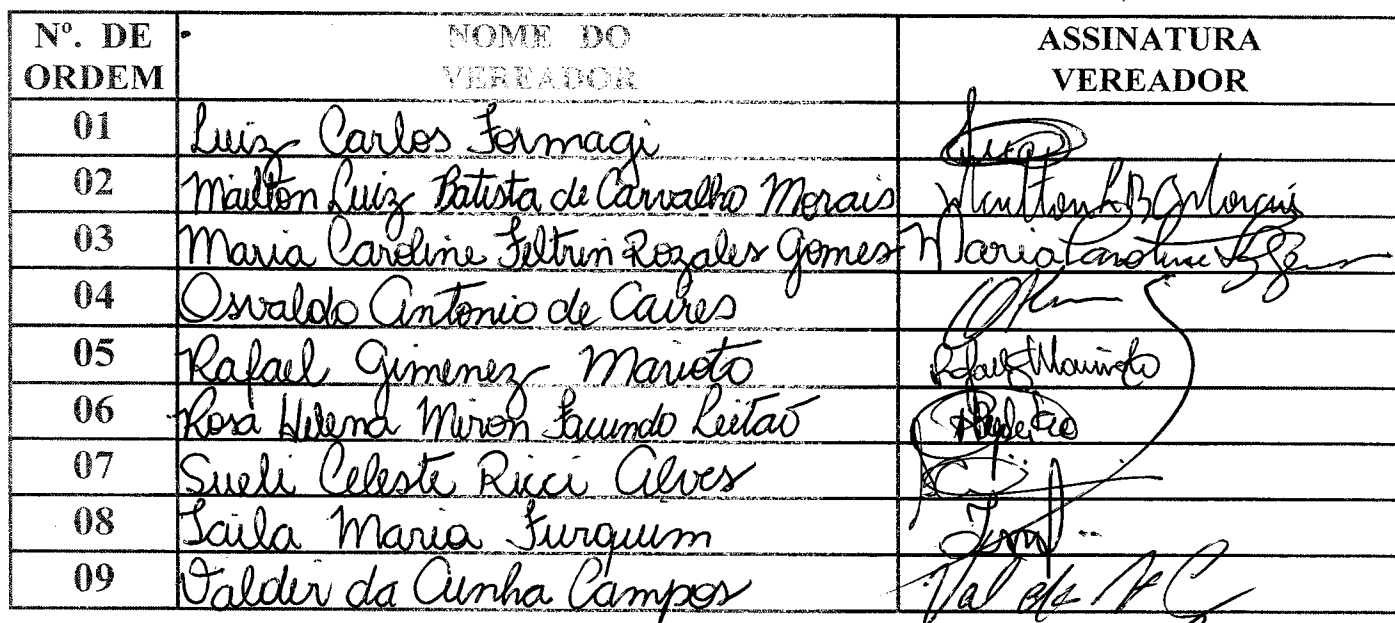 Nº. DE ORDEM NOME DO VEREADOR ASSINATURA VEREADOR
01 Luiz Carlos Formagi
02 Mailton Luiz Batista de Carvalho Morais
03 Maria Caroline Feltrin Rozales Gomes Maria Caroline
04 Osvaldo Antonio de Caires
05 Rafael Gimenez Marioto Rafael Marioto
06 Rosa Helena Miron Facundo Leitão
07 Sueli Celeste Ricci Alves
08 Laila Maria Furquim
09 Valdir da Cunha Campos